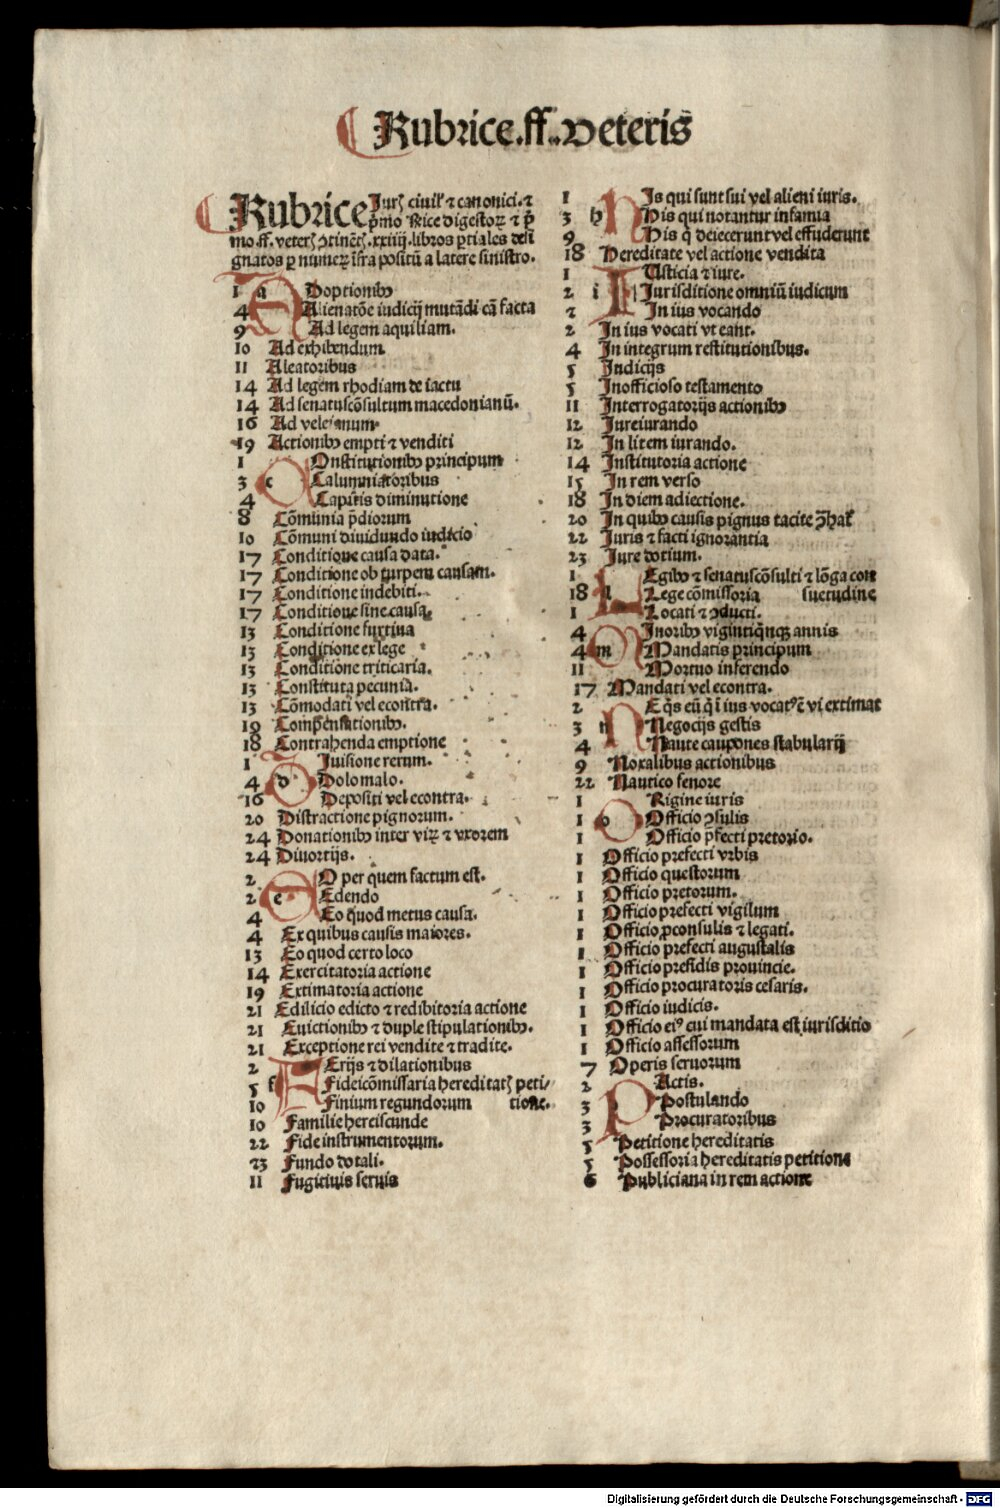 Rubrice .ff. veteris
Rubrice Iurꝭ ciuilꝭ ⁊ canonici. ⁊
p̄mo Rice digestoꝝ ⁊ p̄
mo .ff. veterꝭ ꝯtinētꝭ .xxiiij. libros ꝑtiales desi
gnatos ꝑ numeꝝ īfra positū a latere sinistro.
1 a Doptionibꝰ
4 Alienatōe iudicij mutādi cā facta
9 Ad legem aquiliam.
10 Ad exhibendum
11 Aleatoribus
14 Ad legem rhodiam de iactu
14 Ad senatuscōsultum macedonianū.
16 Ad veleianum
19 Actionibꝰ empti ⁊ venditi
1 Onstitutionibꝰ principum
3 c Calumniatoribus
4 Capitis diminutione
8 Cōmunia p̄diorum
10 Cōmuni diuidundo iudicio
17 Conditione causa data.
17 Conditione ob turpem causam.
17 Conditione indebiti.
17 Conditione sine causa
13 Conditione furtiua
13 Conditione ex lege
13 Conditione triticaria.
13 Constituta pecunia.
13 Cōmodati vel econtra.
19 Compensationibꝰ.
18 Contrahenda emptione
1 Iuisione rerum.
4 d Dolo malo.
16 Depositi vel econtra.
20 Distractione pignorum.
24 Donationibꝰ inter viꝝ ⁊ vxorem
24 Diuortijs.
2 O per quem factum est.
2 e Edendo
4 Eo quod metus causa.
4 Ex quibus causis maiores.
13 Eo quod certo loco
14 Exercitatoria actione
19 Extimatoria actione
21 Edilicio edicto ⁊ redibitoria actione
21 Euictionibꝰ ⁊ duple stipulationibꝰ.
21 Exceptione rei vendite ⁊ tradite.
2 Erijs ⁊ dilationibus
5 f Fideicōmissaria hereditatꝭ peti/
10 Finium regundorum tione.
10 Familie herciscunde
22 Fide instrumentorum.
23 Fundo dotali.
11 Fugitiuis seruis
1 Is qui sunt sui vel alieni iuris.
3 h His qui notantur infamia
9 His q̄ deiecerunt vel effuderunt
18 Hereditate vel actione vendita
1 Usticia ⁊ iure.
2 i Iurisditione omniū iudicum
2 In ius vocando
2 In ius vocati vt eant.
4 In integrum restitutionibus.
5 Iudicijs
5 Inofficioso testamento
11 Interrogatorijs actionibꝰ
12 Iureiurando
12 In litem iurando.
14 Institutoria actione
15 In rem verso
18 In diem adiectione.
20 In quibꝰ causis pignus tacite ꝯ̄hat̉
22 Iuris ⁊ facti ignorantia
23 Iure dotium.
1 Egibꝰ ⁊ senatuscōsulti ⁊ lōga con
18 l Lege cōmissoria suetudine
1 Locati ⁊ ꝯducti.
4 Inoribꝰ vigintiqnqꝫ annis
4 m Mandatis principum
11 Mortuo inferendo
17 Mandati vel econtra.
2 Eq̄s eū q̄ ī ius vocatꝰ ē vi extimat
3 n Negocijs gestis
4 Naute caupones stabularij
9 Noxalibus actionibus
22 Nautico fenore
1 Rigine iuris
1 o Officio ꝯsulis
1 Officio p̄fecti pretorio.
1 Officio prefecti vrbis
1 Officio questorum
1 Officio pretorum.
1 Officio prefecti vigilum
1 Officio ꝓconsulis ⁊ legati.
1 Officio prefecti augustalis
1 Officio presidis prouincie.
1 Officio procuratoris cesaris.
1 Officio iudicis.
1 Officio eiꝰ cui mandata est iurisditio
1 Officio assessorum
7 Operis seruorum
2 Actis.
3 Postulando
3 Procuratoribus
5 Petitione hereditatis
5 Possessoria hereditatis petitione
6 Publiciana in rem actione
Digitalisierung gefördert durch die Deutsche Forschungsgemeinschaft - DFG